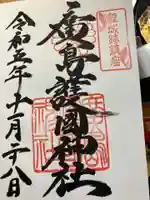 鯉城跡鎮座
廣島護國神社
令和五年十一月二八日